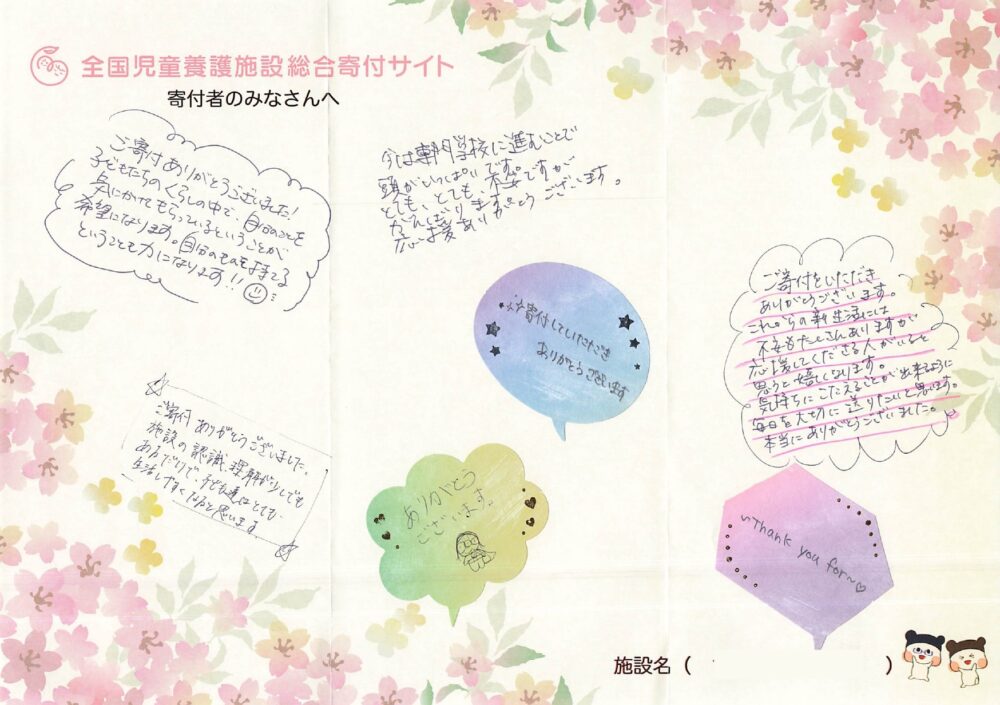 全国児童養護施設総合寄付サイト
寄付者のみなさんへ
ご寄付ありがとうございました!
子どもたちのくらしの中で、自分のことを
気にかけてもらっているということが
希望になります。自分のものをもてる
ということも力になります!!
今は専門学校に進むことで
頭がいっぱいです。
とても、とても、不安ですが
がんばります。
応援ありがとうございます。
寄付していただき
ありがとうございます
ご寄付をいただき
ありがとうございます。
これからの新生活には
不安もたくさんありますが
応援してくださる人がいると
思うと嬉しくなります。
気持ちにこたえることが出来るように
毎日を大切に送りたいと思います。
本当にありがとうございました。
ご寄付ありがとうございました。
施設の認識、理解が少しでも
あるだけで、子ども達はとても
生活しやすくなると思います
ありがとう
ございます。
~Thank you for~♡
施設名( )